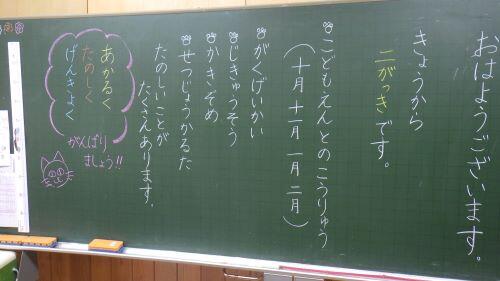 おはようございます。
きょうから
二がっきです。
こどもえんとのこうりゅう
(十月 十一月 一月 二月)
がくげいかい
じきゅうそう
かきぞめ
せつじょうかるた
たのしいことが
たくさんあります。
あかるく
たのしく
げんきよく
がんばり
ましょう!!